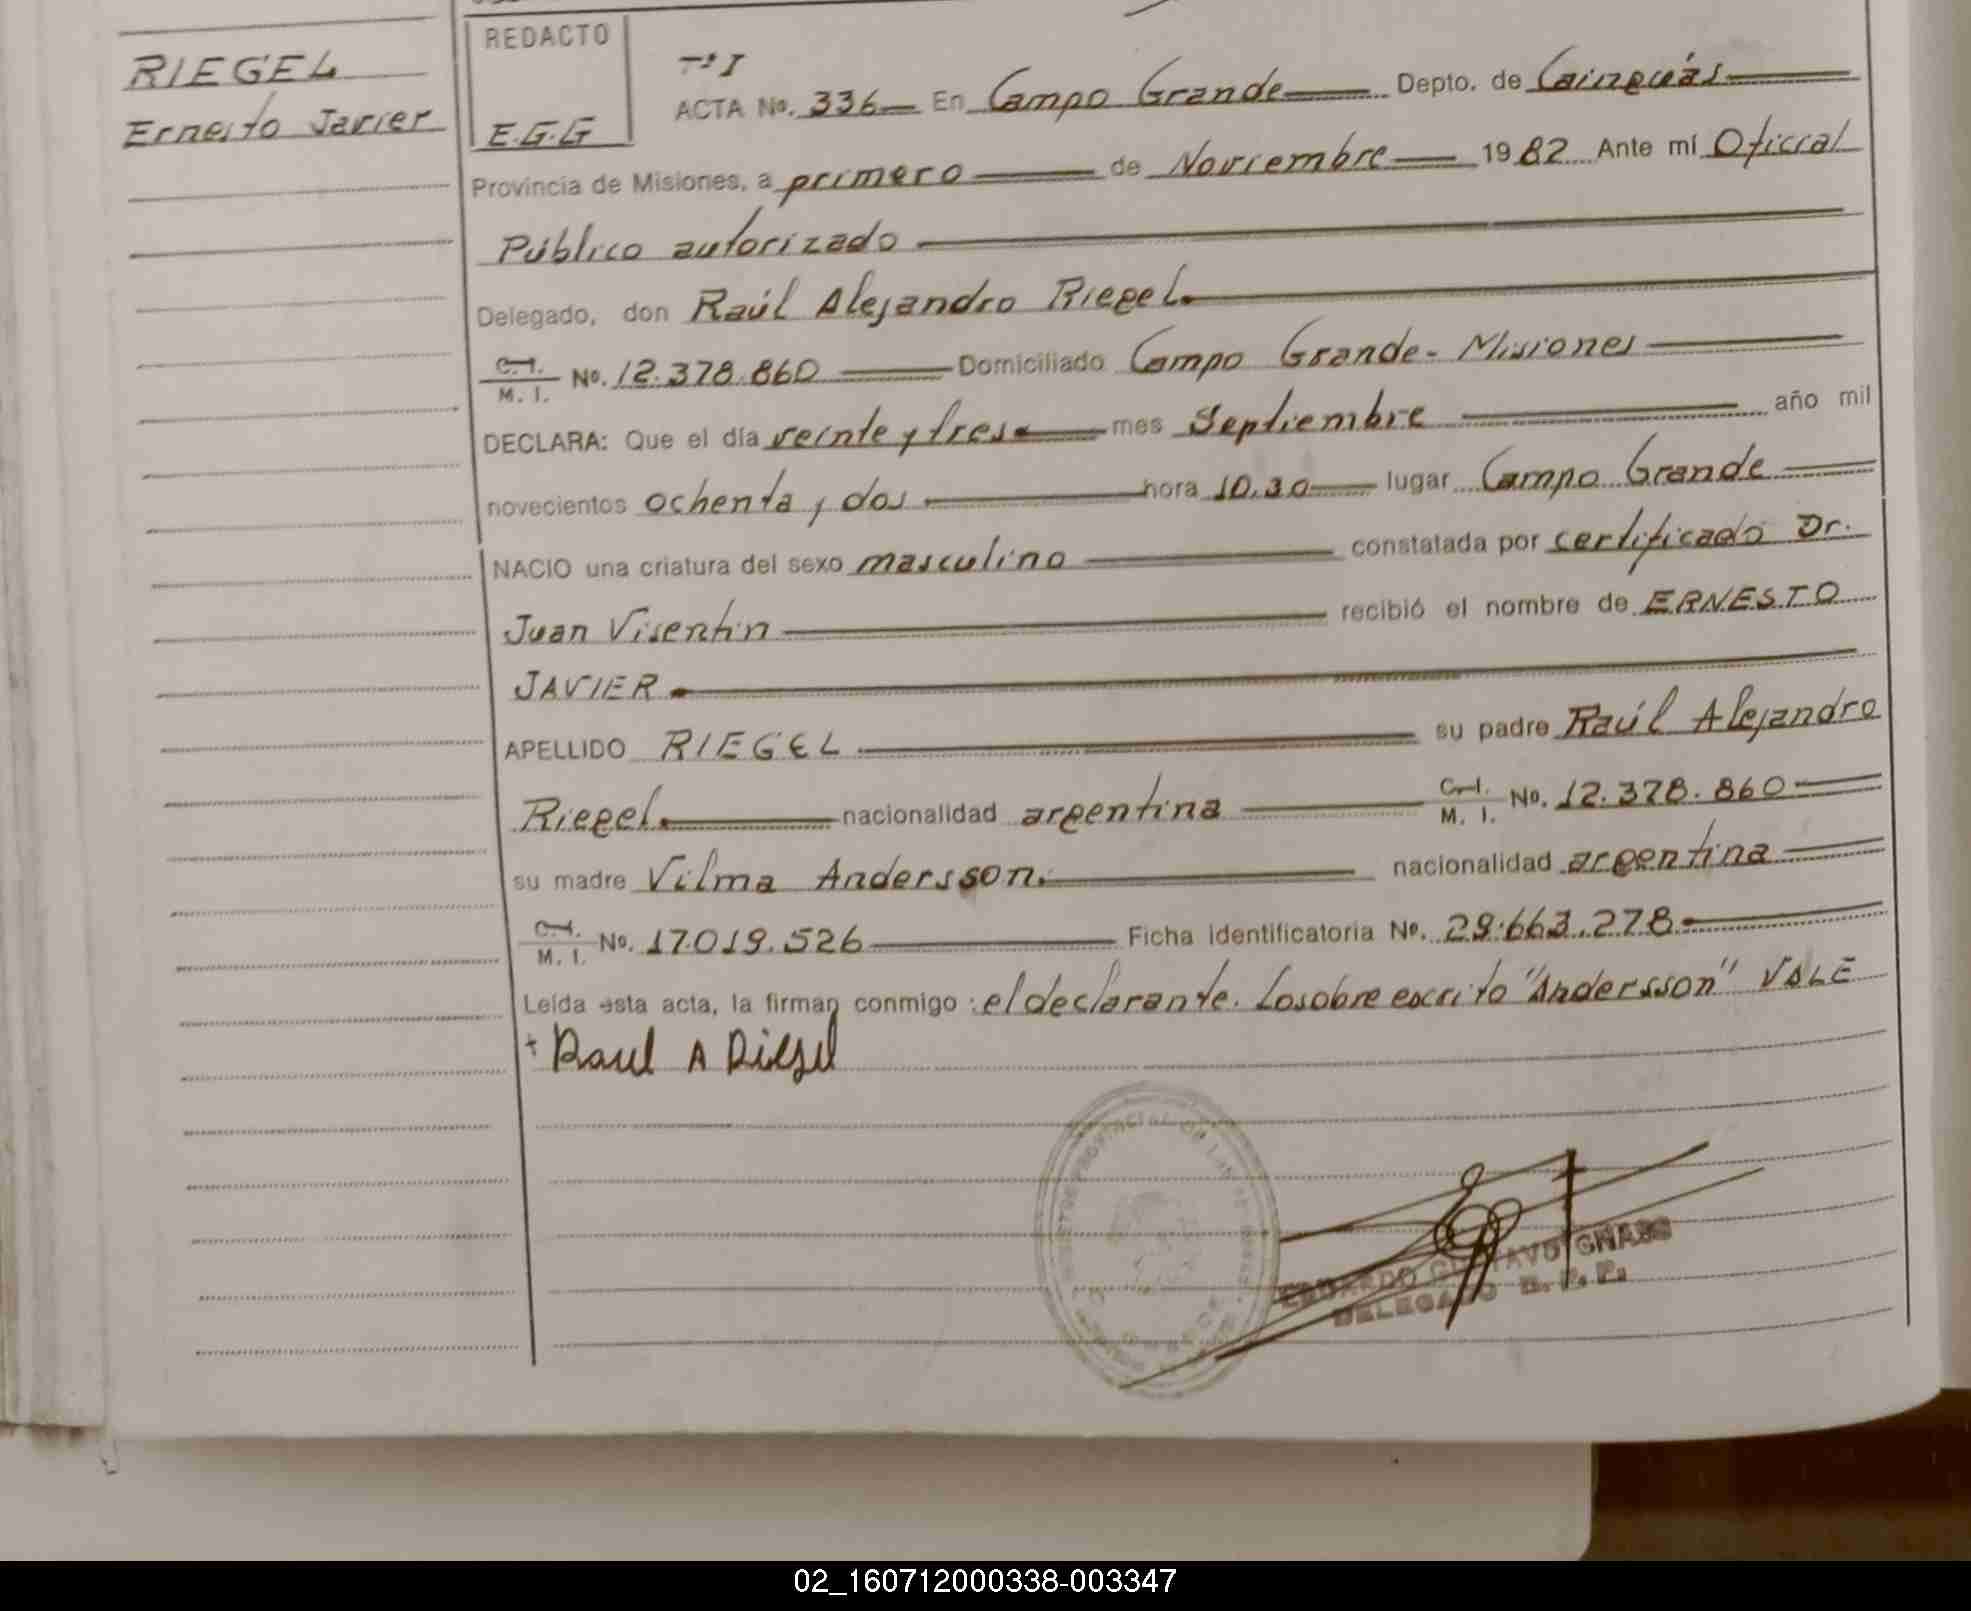 RIEGEL
Ernesto Javier
REDACTO
E.G.G
Tº I
ACTA No. 336 En Campo Grande Depto. de Cainguás
Provincia de Misiones, a primero de Noviembre 1982 Ante mí Oficial
Público autorizado
Delegado, don Raúl Alejandro Riegel.
C.I. M. I. No. 12.378.860 Domiciliado Campo Grande - Misiones
DECLARA: Que el día veinte y tres mes Septiembre año mil
novecientos ochenta y dos hora 10.30 lugar Campo Grande
NACIO una criatura del sexo masculino constatada por certificado Dr.
Juan Visentin recibió el nombre de ERNESTO
JAVIER
APELLIDO RIEGEL su padre Raúl Alejandro
Riegel. nacionalidad argentina C.I. M. I. No. 12.378.860
su madre Vilma Andersson. nacionalidad argentina
C.I. M. I. No. 17.019.526 Ficha identificatoria No. 29.663.278
Leída esta acta, la firman conmigo : el declarante. Lo sobre escrito "Andersson" VALE
+ Raul A Riegel
EDUARDO GUSTAVO
DELEGADO R. P. P.
02_160712000338-003347